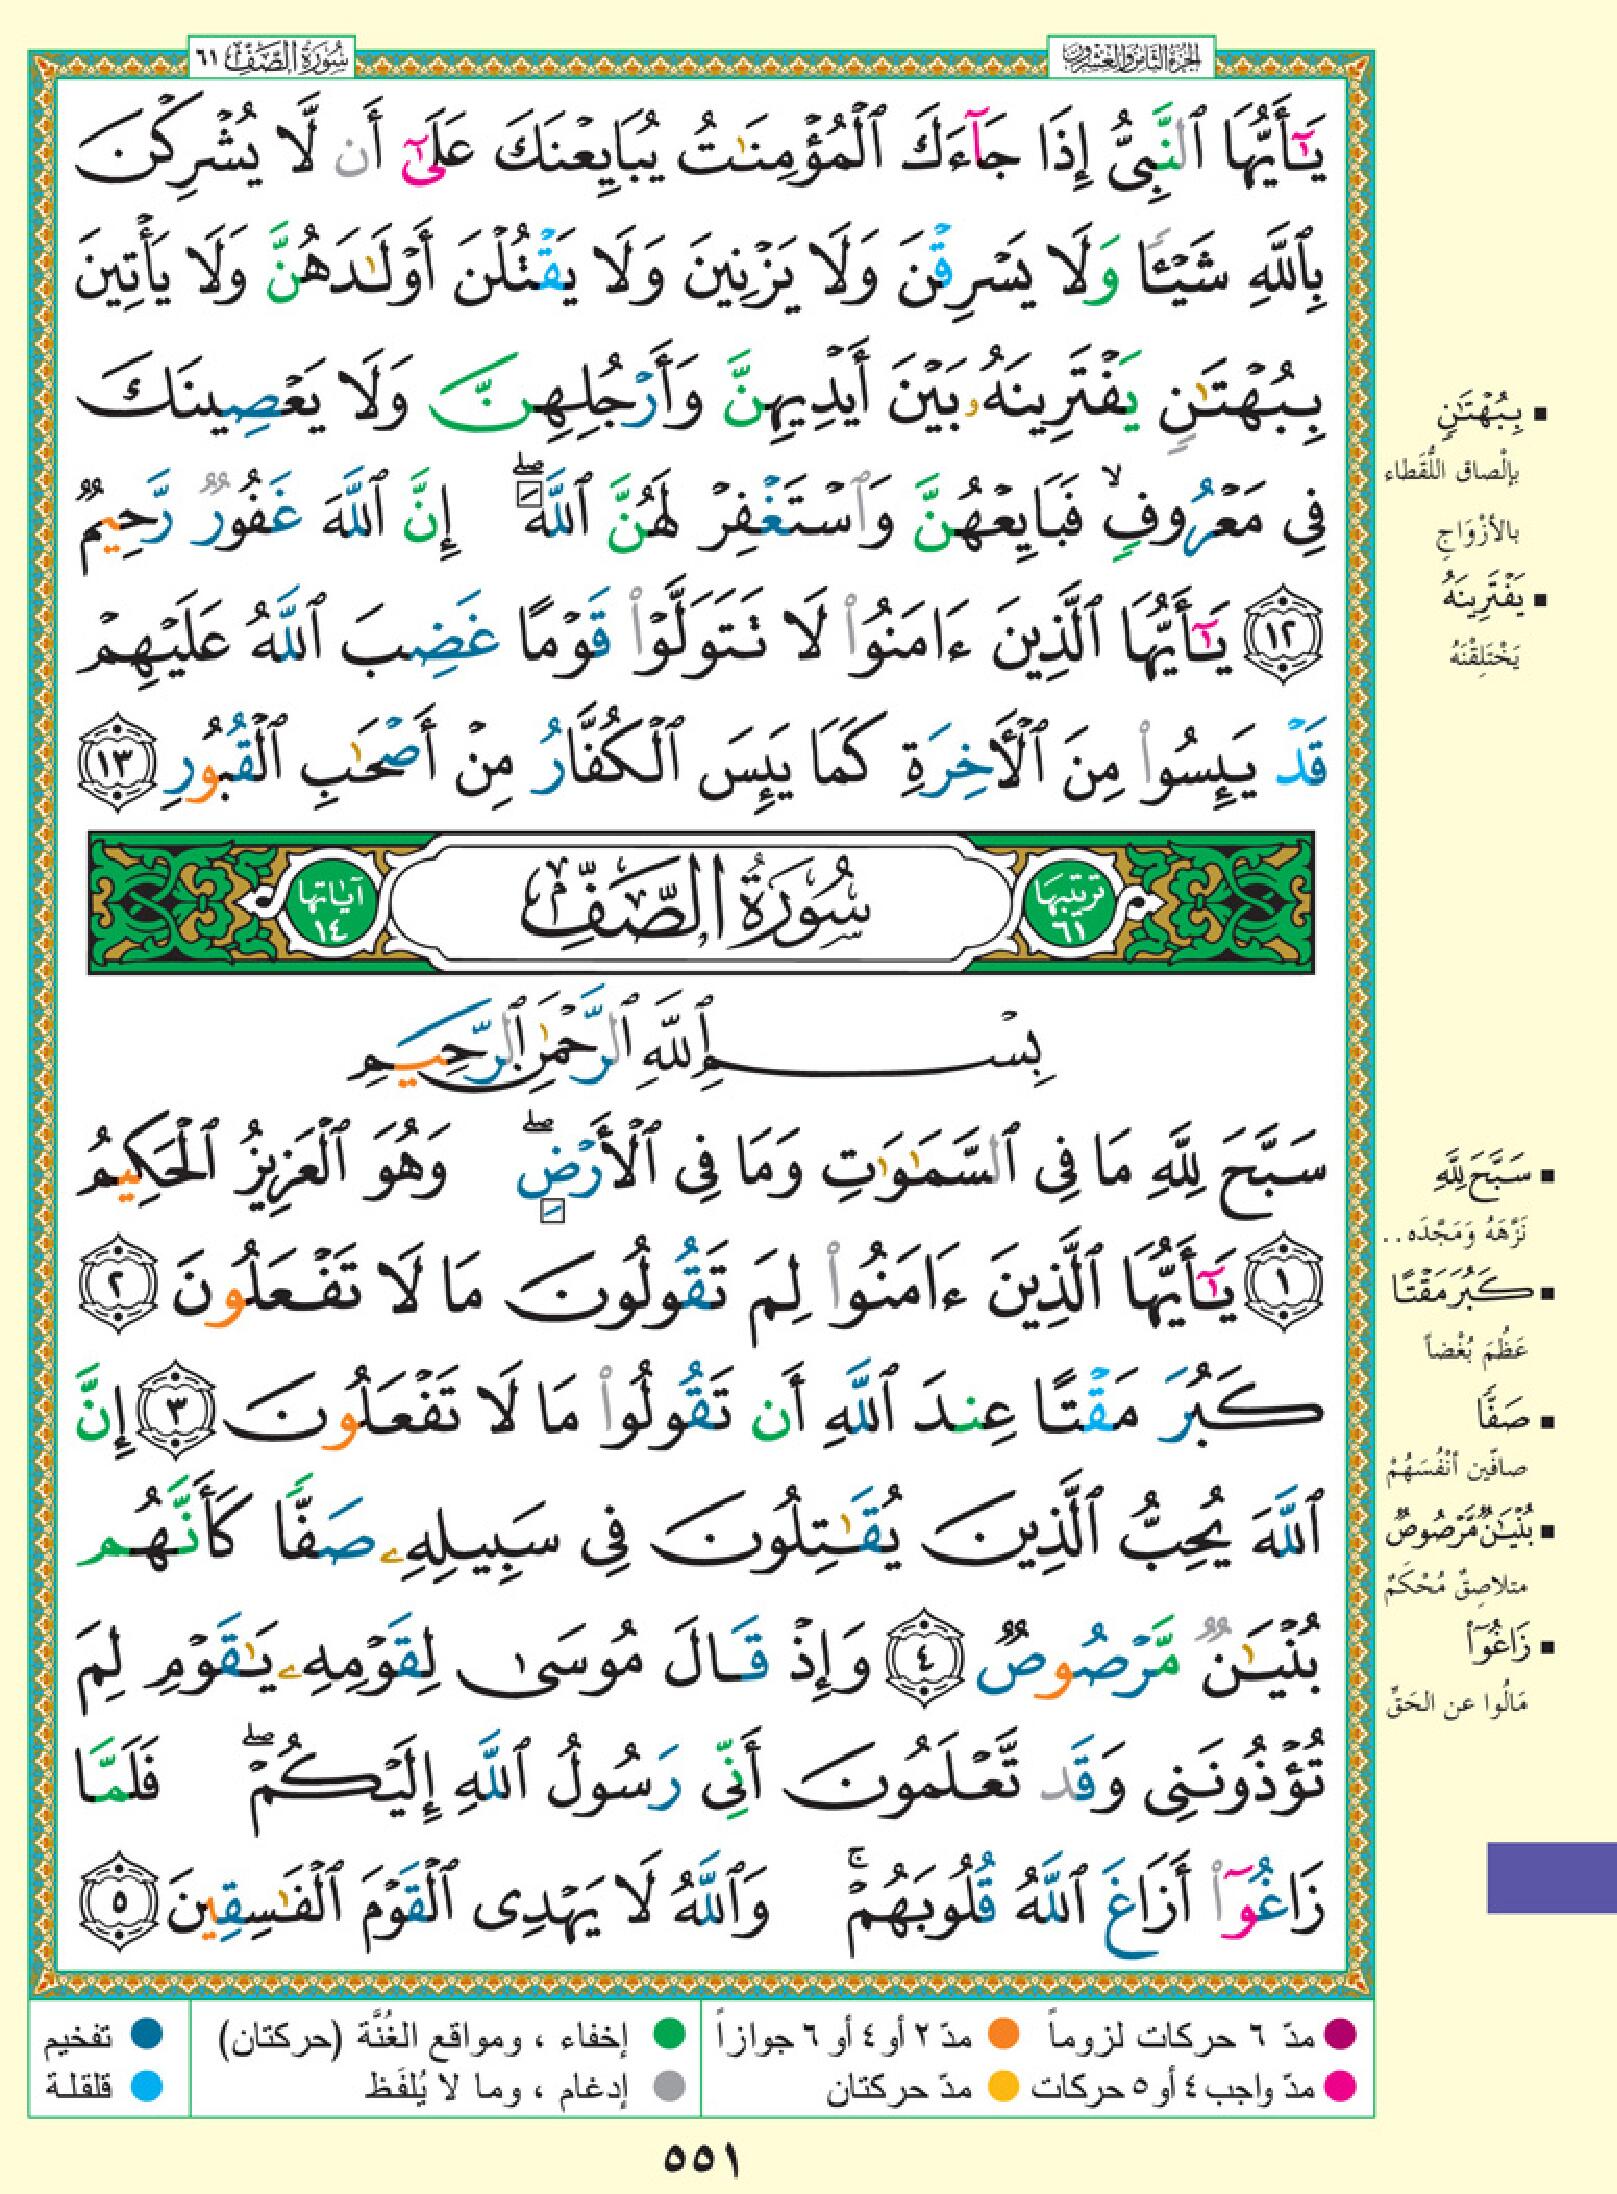 الجزء الثامن والعشرون
سُورَةُ الصَّفِّ ٦١
يَٰٓأَيُّهَا ٱلنَّبِىُّ إِذَا جَآءَكَ ٱلْمُؤْمِنَٰتُ يُبَايِعْنَكَ عَلَىٰٓ أَن لَّا يُشْرِكْنَ
بِٱللَّهِ شَيْـًٔا وَلَا يَسْرِقْنَ وَلَا يَزْنِينَ وَلَا يَقْتُلْنَ أَوْلَٰدَهُنَّ وَلَا يَأْتِينَ
بِبُهْتَٰنٍ يَفْتَرِينَهُۥ بَيْنَ أَيْدِيهِنَّ وَأَرْجُلِهِنَّ وَلَا يَعْصِينَكَ
فِى مَعْرُوفٍ ۙ فَبَايِعْهُنَّ وَٱسْتَغْفِرْ لَهُنَّ ٱللَّهَ ۖ إِنَّ ٱللَّهَ غَفُورٌ رَّحِيمٌ
١٢ يَٰٓأَيُّهَا ٱلَّذِينَ ءَامَنُوا۟ لَا تَتَوَلَّوْا۟ قَوْمًا غَضِبَ ٱللَّهُ عَلَيْهِمْ
قَدْ يَئِسُوا۟ مِنَ ٱلْأَخِرَةِ كَمَا يَئِسَ ٱلْكُفَّارُ مِنْ أَصْحَٰبِ ٱلْقُبُورِ ١٣
ترتيبها ٦١
سُورَةُ الصَّفِّ
آياتها ١٤
بِسْمِ ٱللَّهِ ٱلرَّحْمَٰنِ ٱلرَّحِيمِ
سَبَّحَ لِلَّهِ مَا فِى ٱلسَّمَٰوَٰتِ وَمَا فِى ٱلْأَرْضِ ۖ وَهُوَ ٱلْعَزِيزُ ٱلْحَكِيمُ
١ يَٰٓأَيُّهَا ٱلَّذِينَ ءَامَنُوا۟ لِمَ تَقُولُونَ مَا لَا تَفْعَلُونَ ٢
كَبُرَ مَقْتًا عِندَ ٱللَّهِ أَن تَقُولُوا۟ مَا لَا تَفْعَلُونَ ٣ إِنَّ
ٱللَّهَ يُحِبُّ ٱلَّذِينَ يُقَٰتِلُونَ فِى سَبِيلِهِۦ صَفًّا كَأَنَّهُم
بُنْيَٰنٌ مَّرْصُوصٌ ٤ وَإِذْ قَالَ مُوسَىٰ لِقَوْمِهِۦ يَٰقَوْمِ لِمَ
تُؤْذُونَنِى وَقَد تَّعْلَمُونَ أَنِّى رَسُولُ ٱللَّهِ إِلَيْكُمْ ۖ فَلَمَّا
زَاغُوٓا۟ أَزَاغَ ٱللَّهُ قُلُوبَهُمْ ۚ وَٱللَّهُ لَا يَهْدِى ٱلْقَوْمَ ٱلْفَٰسِقِينَ ٥
بِبُهْتَٰنٍ
بإلْصاق اللُّقَطَاء
بالأزْوَاجِ
يَفْتَرِينَهُ
يَخْتَلِقْنَهُ
سَبَّحَ لِلَّهِ
نَزَّهَهُ وَمَجَّدَه..
كَبُرَ مَقْتًا
عَظُمَ بُغْضاً
صَفًّا
صافّين أنْفُسَهُمْ
بُنْيَٰنٌ مَّرْصُوصٌ
متلاصِقٌ مُحْكَمٌ
زَاغُوٓا۟
مَالُوا عن الحَقّ
مدّ ٦ حركات لزوماً
مدّ ٢ أو ٤ أو ٦ جوازاً
إخفاء ، ومواقع الغُنَّة (حركتان)
تفخيم
مدّ واجب ٤ أو ٥ حركات
مدّ حركتان
إدغام ، وما لا يُلفَظ
قلقلة
٥٥١